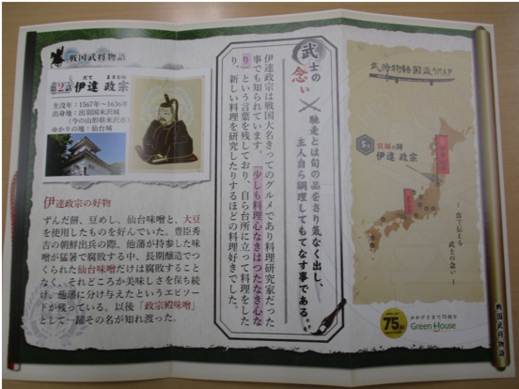 戦国武将物語
だて まさむね
伊達 政宗
生没年：1567年～1636年
出身地：出羽国米沢城
（今の山形県米沢市）
ゆかりの地：仙台城
伊達政宗の好物
ずんだ餅、豆めし、仙台味噌と、大豆
を使用したものを好んでいた。豊臣秀
吉の朝鮮出兵の際、他藩が持参した味
噌が猛暑で腐敗する中、長期醸造でつ
くられた仙台味噌だけは腐敗すること
なく、それどころか美味しさを保ち続
け、他藩に分け与えたというエピソー
ドが残っている。以後「政宗殿味噌」
として一躍その名が知れ渡った。
武士の
念い
馳走とは旬の品をさり気なく出し、
主人自ら調理してもてなす事である。
伊達政宗は戦国大名きってのグルメであり料理研究家だった
事でも知られています。「少しも料理心なきはつたなき心な
り」という言葉を残しており、自ら台所に立って料理をした
り、新しい料理を研究したりするほどの料理好きでした。
武将物語国盗
宮城の陣
伊達 政宗
食で伝える
武士の念い
75
おかげさまで75周年
Green House
戦国武将物語